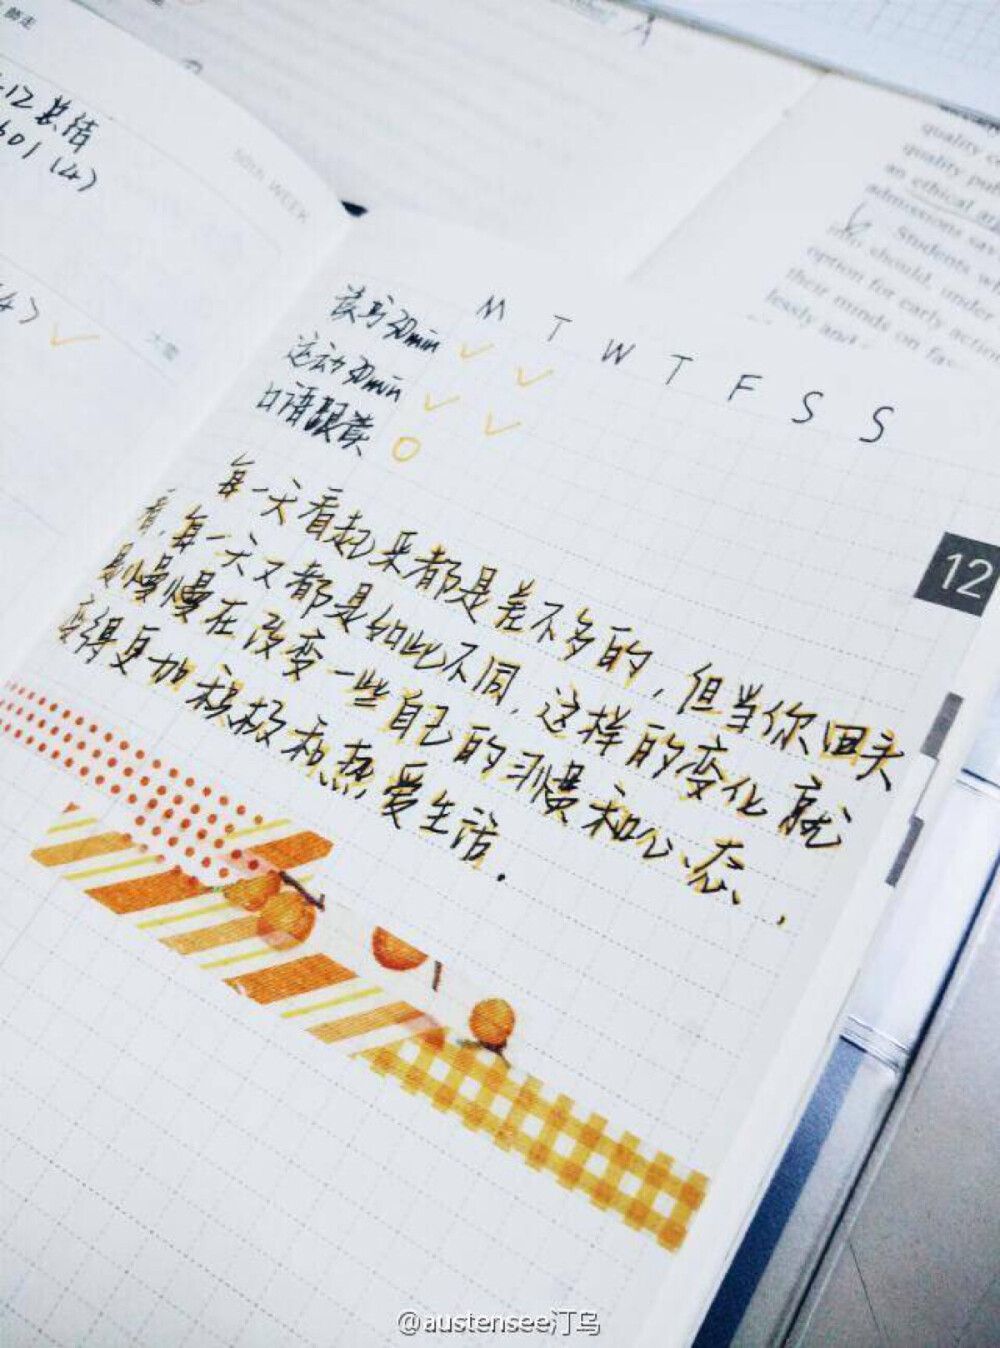 師走
12总结
601(4)
50th WEEK
大雪
A
quality
quality
an ethical
admissions
Students
into should, under
option for early action
their minds on
lessly and
M T W T F S S
读书30min ✓ ✓
运动30min ✓ ✓
口语跟读 O
每一天看起来都是差不多的,但当你回头
看,每一天又都是如此不同,这样的变化就
是慢慢在改变一些自己的习惯和心态,
变得更加积极和热爱生活.
12
@austensee汀乌